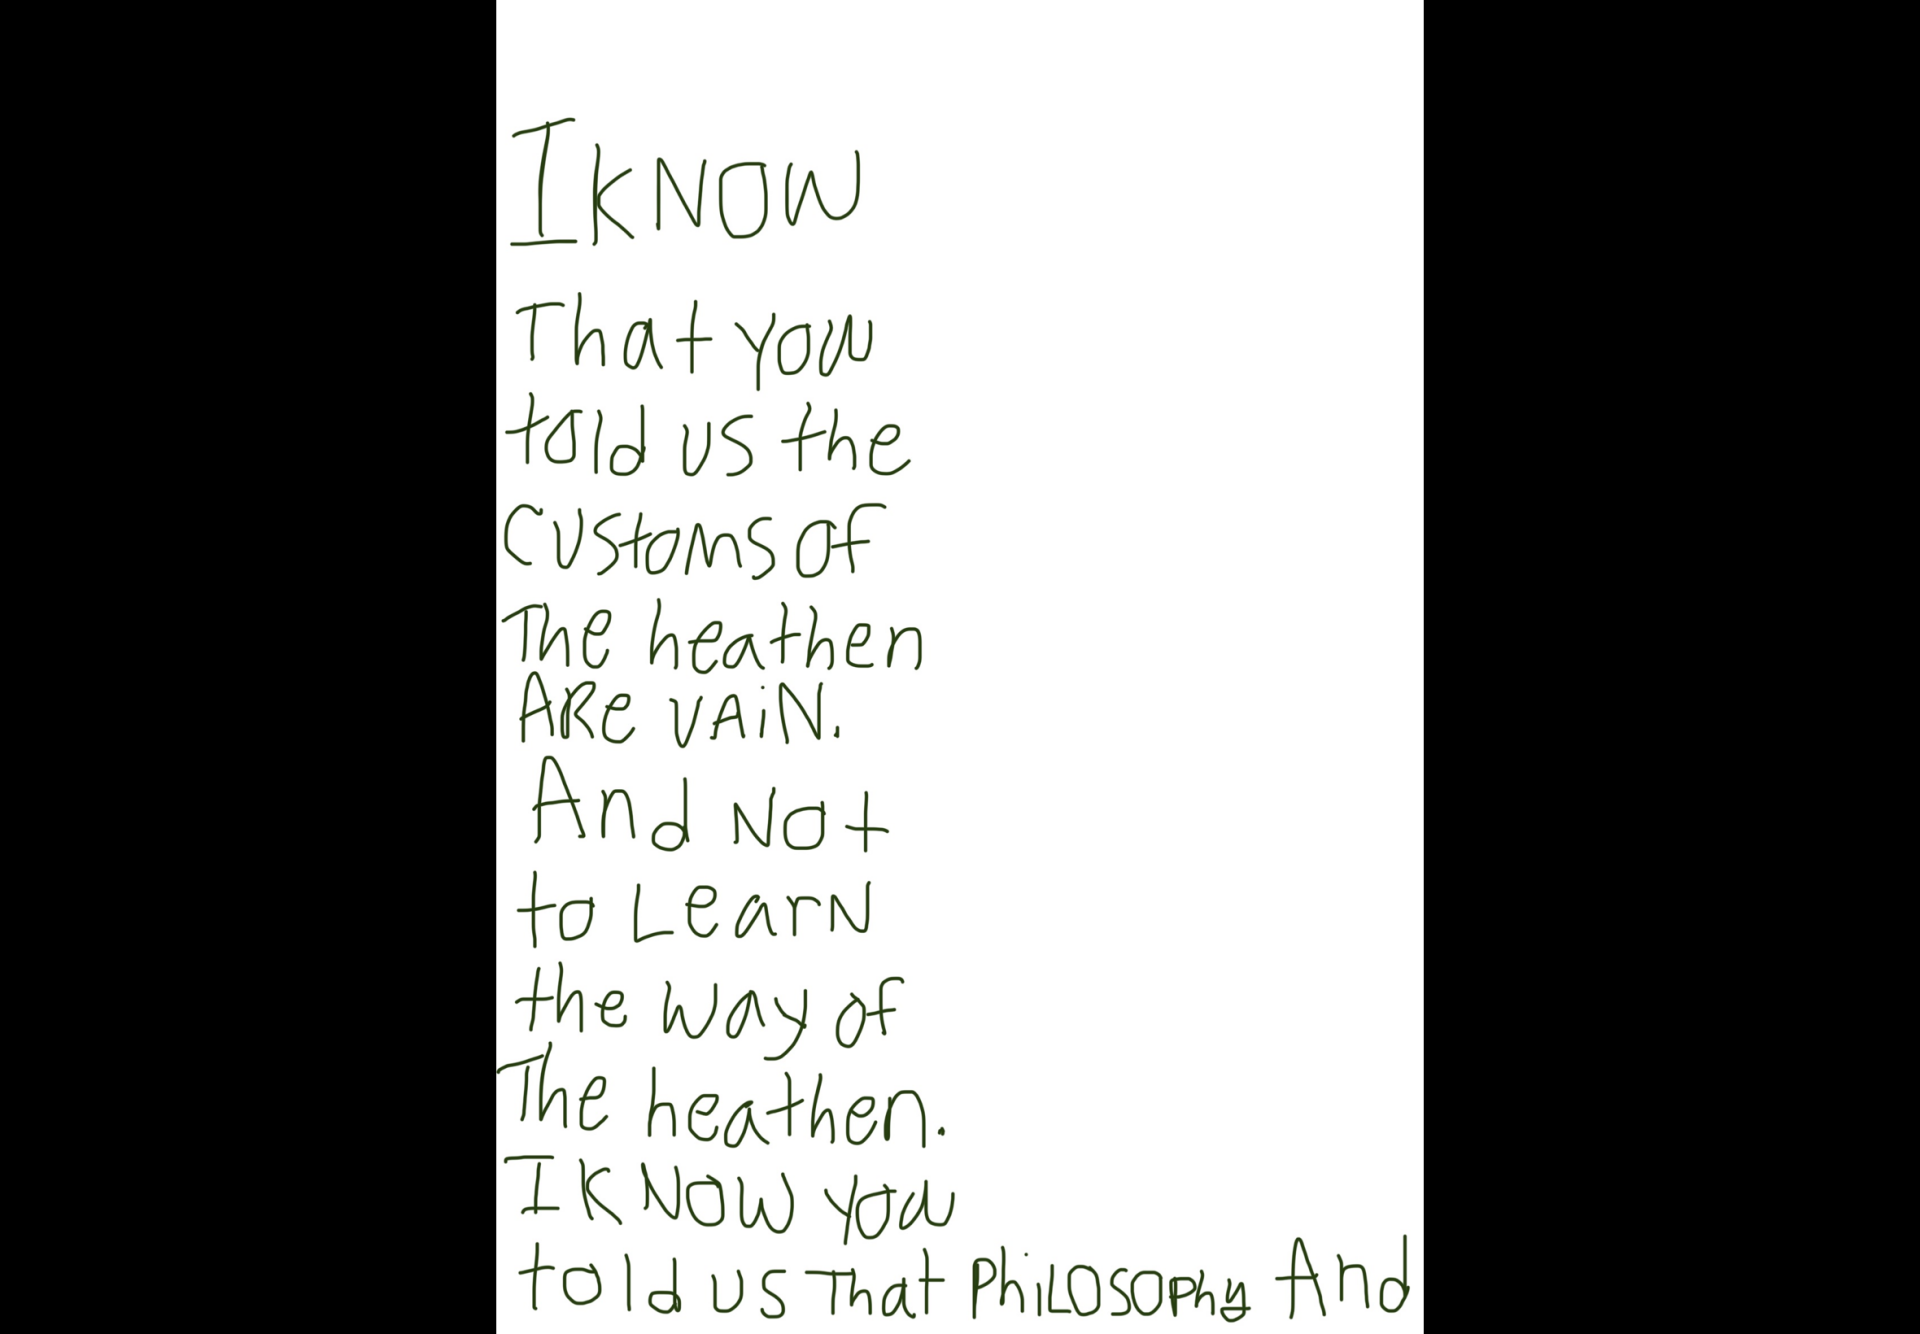 I KNOW
That you
told us the
customs of
The heathen
ARe VAiN.
And Not
to LearN
the way of
The heathen.
I KNOW you
told us That PhiLOSOphy And